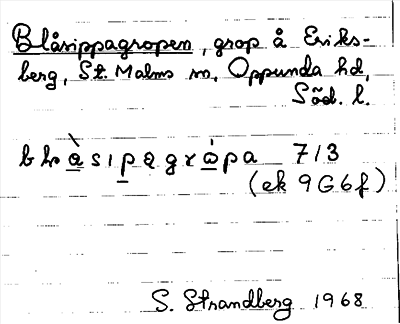 Blåsippagropen, grop å Eriks-
berg, St. Malms sn, Oppunda hd,
Söd. l.
blåsıpagrȯpa 7/3
(ek 9G6f)
S. Strandberg 1968